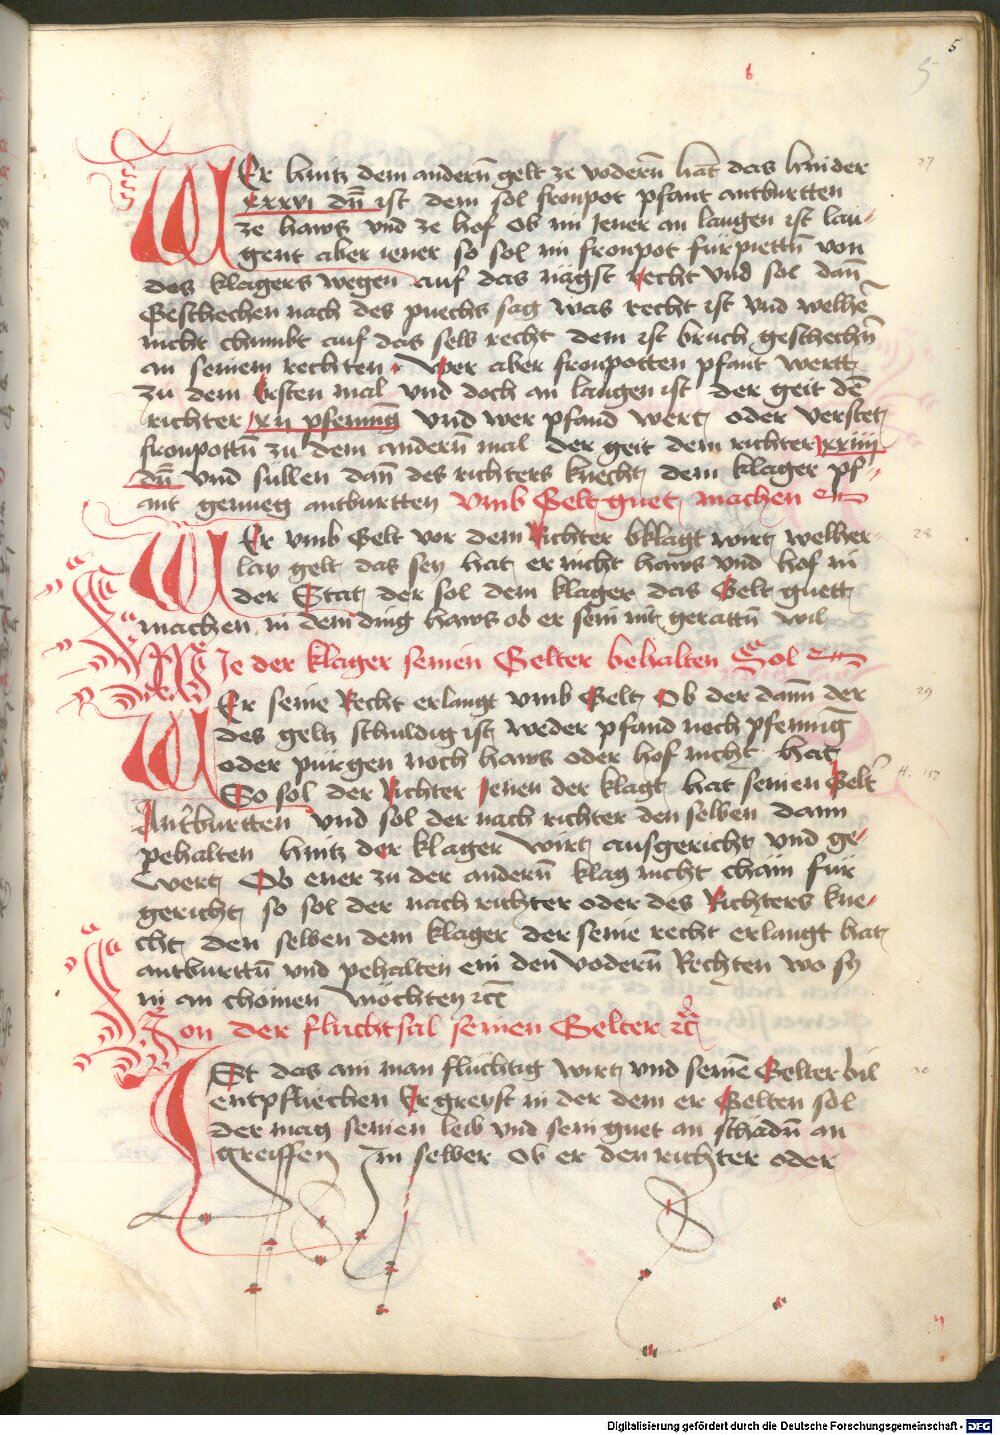 5
5
6
WEr hintz dem andern̄ gelt ze vodern̄ hat das hinder 27
xxxvi dn̄ ist dem sol fronpot pfant antburtten
ze haws vnd ze hof Ob im Jener an laugen ist lau-
gent aber iener so sol im fronpot fürpiettn̄ von
des klagers wegen auf das nägst recht vnd sol dan̄
Geschechen nach des puechs sag was recht ist vnd welhē
nicht chumbt auf das selb recht dem ist bruch geschechn̄
an seinem rechten Wer aber fronpotten pfant wertt
zu dem Ersten mal vnd doch an laugen ist der geit dē
richter xii pfenning vnd wer pfand wert oder verstet
fronpottn̄ zu dem andern̄ mal der geit dem richter xxiiii
dn̄ vnd sullen dan̄ des richters knecht dem klager pf-
ant genueg antburtten vmb Gelt guet machen
WEr vmb Gelt vor dem Richter bklagt wirt welher- 28
lay gelt das sey hat er nicht haws vnd hof in
der Stat der sol dem klager das Gelt guett
machen in dem ding haws ob er sein nit gerattn̄ wil
Wie der klager seinen Gelter behalten Sol
WEr seine Recht erlangt vmb Gelt Ob der dann der 29
des geltz schuldig ist weder pfand noch pfenning
oder pürgen noch haws oder hof nicht hat
So sol der Richter Jenen der klagt hat seinen Gelt' H. 137
Antburtten vnd sol der nach richter den selben dann
pehalten hintz der klager wirt ausgericht vnd ge-
wert Ob ener zu der andern̄ klag nicht chäm für
gericht so sol der nach richter oder des Richters kne-
cht den selben dem klager der seine recht erlangt hat
antburttn̄ vnd pehalten ein den vodern̄ Rechten wo sy
in an chömen möchten etc
Von der fluchtsal seinen Gelter etc
ISt das ain man flüchtig wirt vnd seinē Gelter wil 30
entpfliechen Ergreyft in der dem er Gelten sol
der mag seinen leib vnd sein guet an schadn̄ an
greiffen Im selber Ob er den richter oder
Digitalisierung gefördert durch die Deutsche Forschungsgemeinschaft - DFG